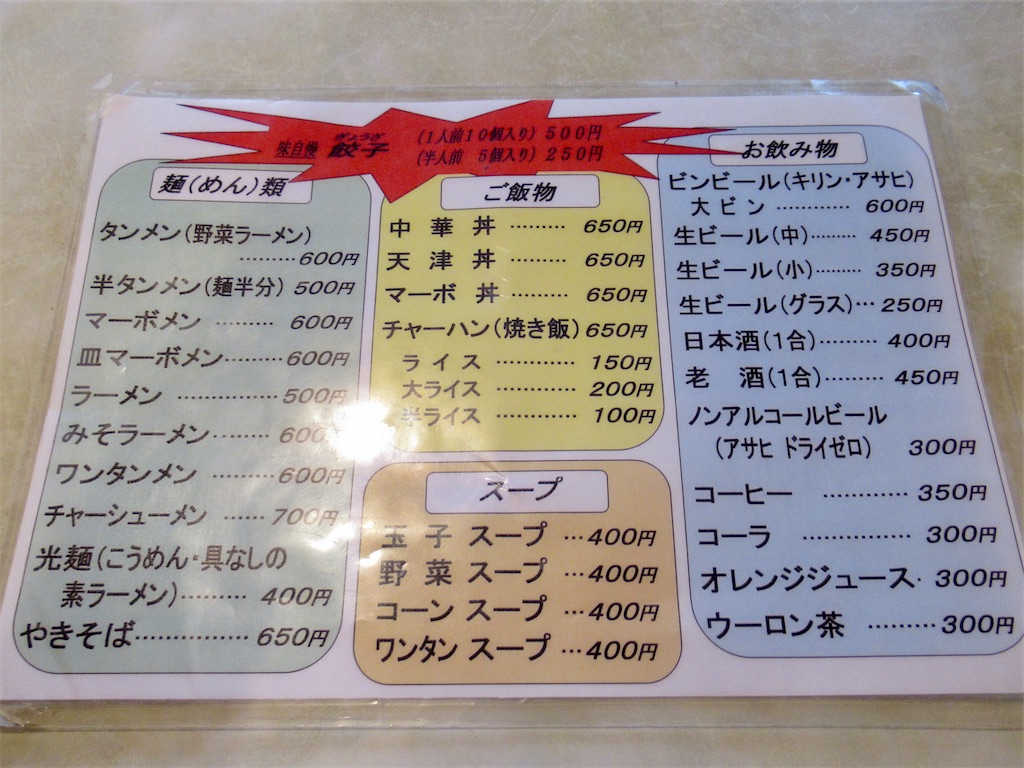 味自慢 餃子 ぎょうざ (1人前10個入り) 500円
(半人前 5個入り) 250円
麺(めん)類
タンメン(野菜ラーメン)
………600円
半タンメン(麺半分) 500円
マーボメン ……… 600円
皿マーボメン………600円
ラーメン ……………500円
みそラーメン………600円
ワンタンメン ………600円
チャーシューメン ……700円
光麺(こうめん・具なしの
素ラーメン)……… 400円
やきそば……………… 650円
ご飯物
中華丼 ……… 650円
天津丼 ……… 650円
マーボ丼 ……… 650円
チャーハン(焼き飯)650円
ライス ………… 150円
大ライス ………… 200円
半ライス ………… 100円
スープ
玉子スープ …400円
野菜スープ …400円
コーンスープ …400円
ワンタンスープ …400円
お飲み物
ビンビール(キリン・アサヒ)
大ビン ………… 600円
生ビール(中)……… 450円
生ビール(小)……… 350円
生ビール(グラス)… 250円
日本酒(1合)……… 400円
老酒(1合)……… 450円
ノンアルコールビール
(アサヒ ドライゼロ) 300円
コーヒー ………… 350円
コーラ …………… 300円
オレンジジュース・ 300円
ウーロン茶 ……… 300円